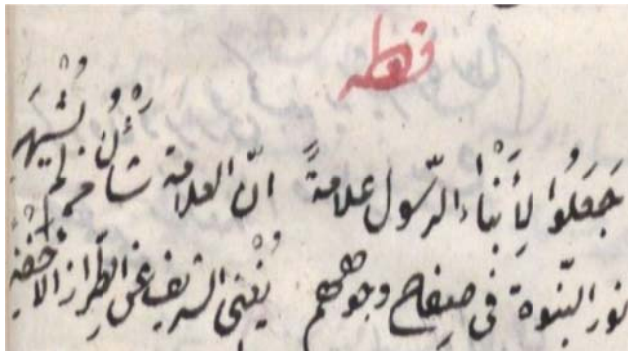 قطعه
جَعَلُوا لِأَبْنَاءِ الرّسول علامةً انّ العلامة شَأْنُ من لم يُشْهَرِ
نور النّبوة فى صفاح وجوههم يُغْنى الشريف عَنِ الطِّراز الأخْضَرِ